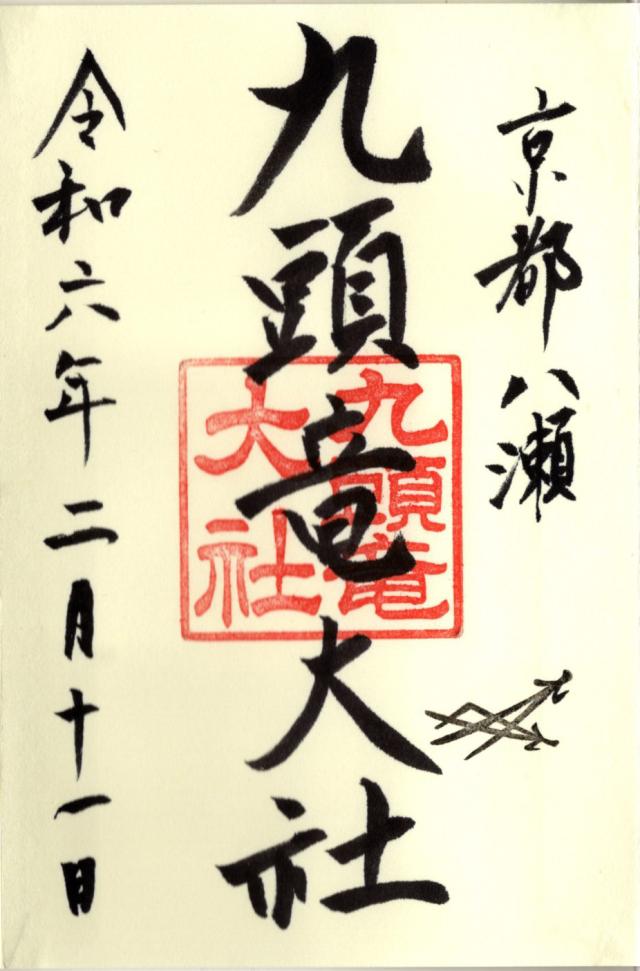 京都八瀬
九頭竜大社
九頭竜
大社
令和六年二月十一日